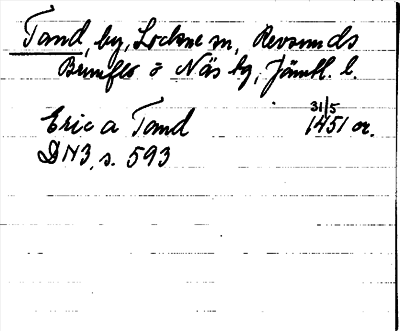 Tand, by, Lockne sn, Revsunds
Brunflo o Näs tg, Jämtl. l.
Eric a Tand 31/5 1451 or.
DN3, s. 593